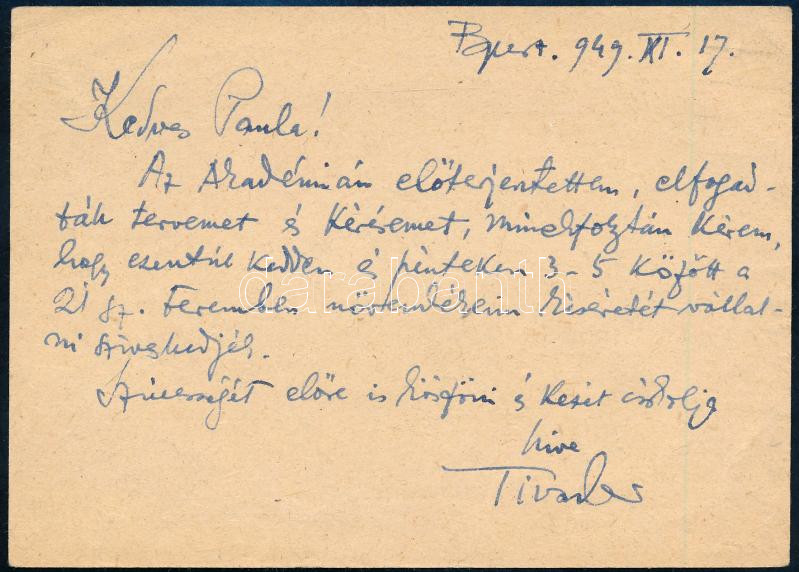 Bpest. 949. XI. 17.
Kedves Paula!
Az Akadémián előterjesztettem, elfogad-
ták tervemet és kérésemet, mindkfoztán kérem,
hogy ezentúl kedden és pénteken 3-5 között a
21 sz. teremben növendékeim kiséretét vállal-
ni sziveskedjék.
Szivességét előre is köszöni és kezét csókolja
hive
Tivadar
darabanth